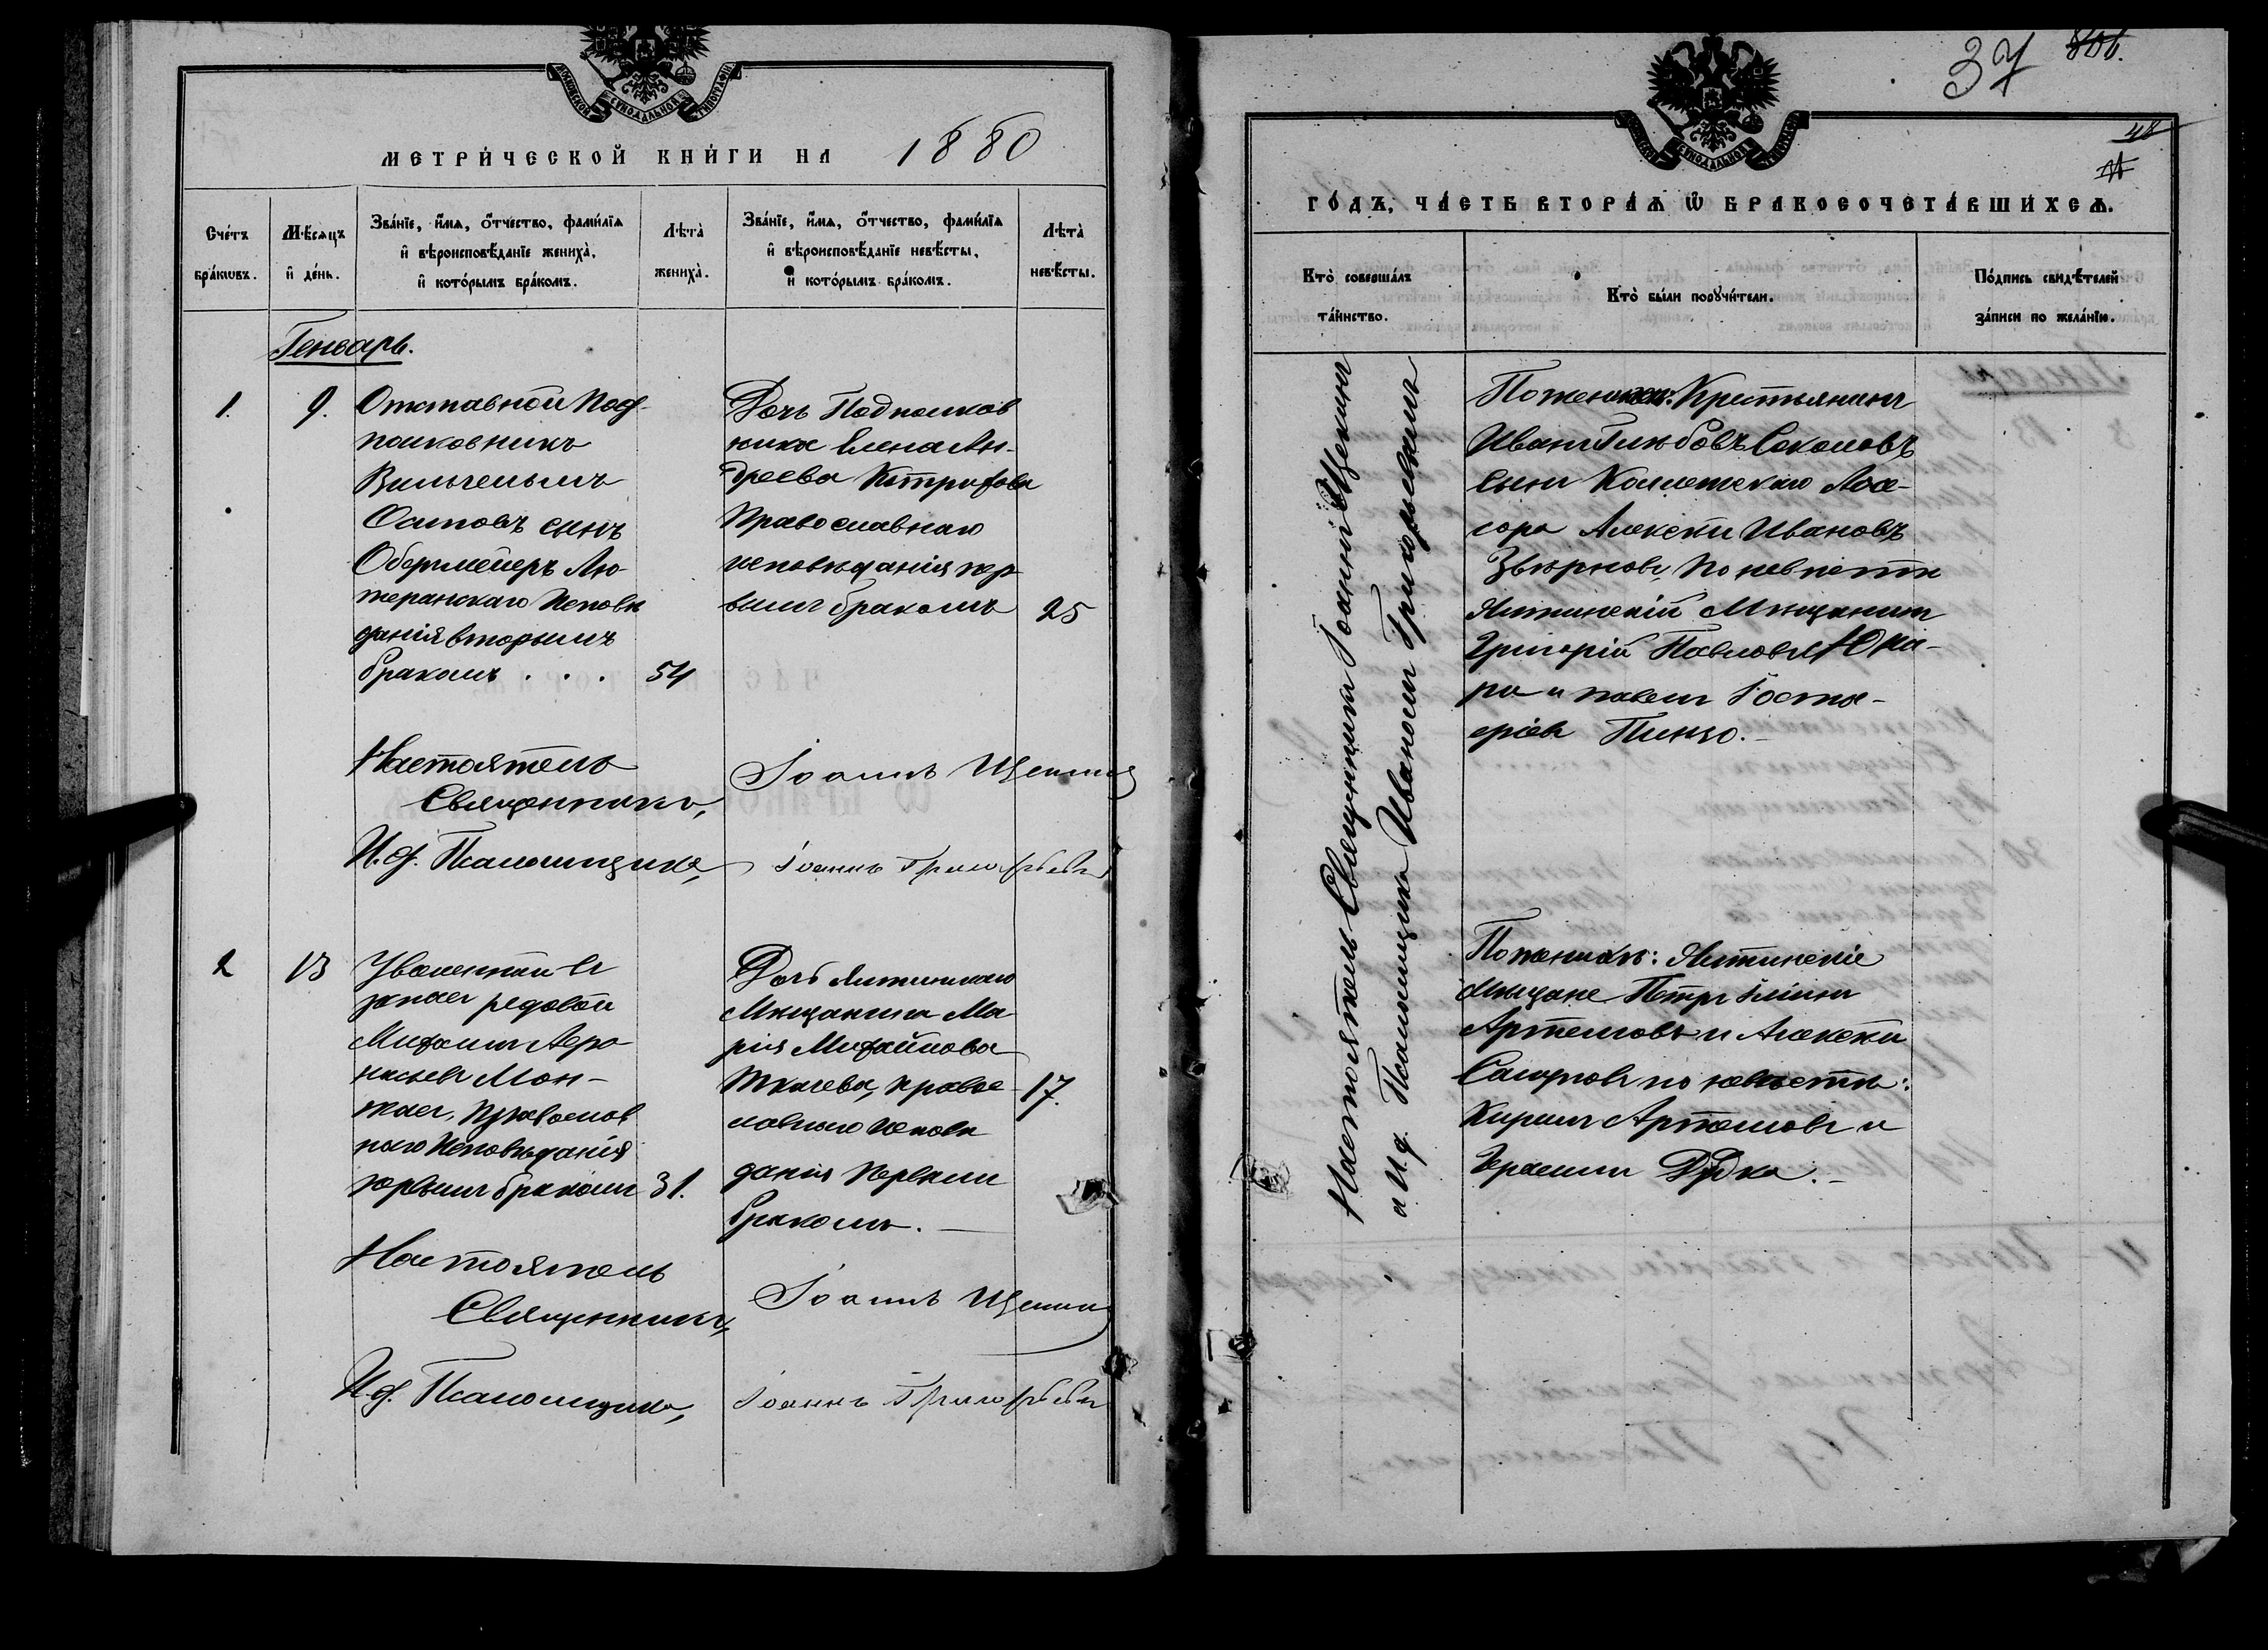 МОСКОВСКОЙ СѴНОДАЛЬНОЙ ТИПОГРАФІИ
МЕТРИ́ЧЕСКОЙ КНИ́ГИ НА 1880
Сче́тъ бра́кѡвъ.
Мѣ́сяцъ и҆ де́нь.
Зва́нїе, и҆́мѧ, ѻ҆́тчество, фами́лїѧ и҆ вѣроисповѣ́данїе жениха̀, и҆ кото́рымъ бра́комъ.
Лѣта̀ жениха̀.
Зва́нїе, и҆́мѧ, ѻ҆́тчество, фами́лїѧ и҆ вѣроисповѣ́данїе невѣ́сты, и҆ кото́рымъ бра́комъ.
Лѣта̀ невѣ́сты.
Генварь.
1. 9.
Отставной Под-
полковникъ
Вильгельмъ
Осиповъ сынъ
Обермейеръ Лю-
теранскаго Исповѣ
данія вторымъ
бракомъ . . . 54
Дочь Подполков
ника Елена Ан-
дреева
Православнаго
исповѣданія пер
вымъ бракомъ 25
Настоятель
Священникъ, Іоаннъ Щекинъ
И.д. Псаломщика, Іоаннъ Григорьевъ
2 13
Уволенный въ
запасъ рядовой
Михаилъ
Православ
наго Исповѣданія
первымъ бракомъ 31.
Дочь Ялтинскаго
Мѣщанина Ма
рія Михайлова
Ткачева, право-
славнаго Исповѣ
данія Первымъ
бракомъ. 17.
Настоятель
Священникъ, Іоаннъ Щекинъ
И.д. Псаломщика, Іоаннъ Григорьевъ
37 806.
МОСКОВСКОЙ СѴНОДАЛЬНОЙ ТИПОГРАФІИ
48
ГО́ДЪ, ЧА́СТЬ ВТОРА́Ѧ Ѡ҆ БРАКОСОЧЕТА́ВШИХСѦ.
Кто̀ соверша́лъ та́инство.
Кто̀ бы́ли порꙋчи́тели.
По́дпись свидѣ́телей за́писи по жела́нїю.
Настоятель Священникъ Іоаннъ Щекинъ
и И.д. Псаломщика Иваномъ Григорьевымъ
По женихѣ: Крестьянинъ
Иванъ Глѣбовъ Соколовъ
сынъ Коллежскаго Ассе-
сора Алексѣй Ивановъ
по невѣстѣ
Ялтинскій Мѣщанинъ
Григорій Павловъ
и Павелъ
По женихѣ: Ялтинскіе
Мѣщане Петръ
Артемовъ и Алексѣй
по невѣстѣ:
Кирилъ Артемовъ и
Герасимъ Дудка.